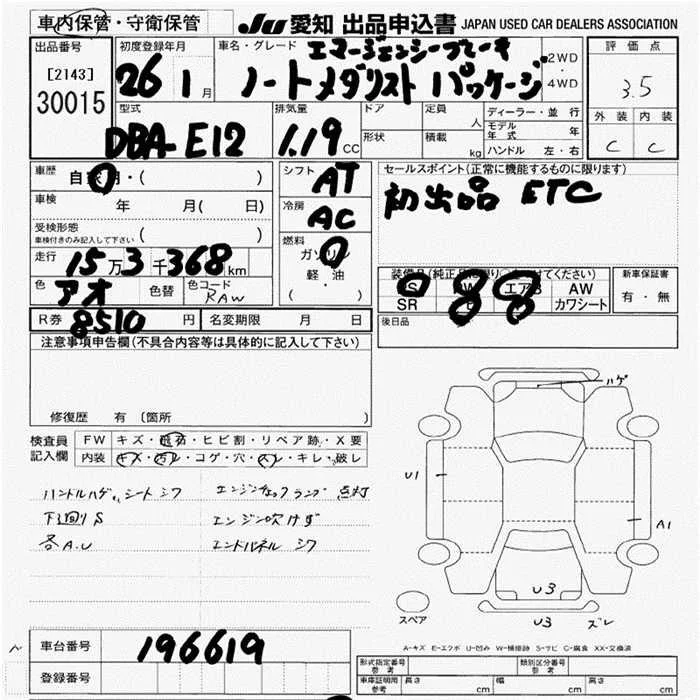 車内保管・守衛保管 JU 愛知 出品申込書 JAPAN USED CAR DEALERS ASSOCIATION
出品番号 初度登録年月 車名・グレード エマージェンシーブレーキ 評価点
[2143] 26 1月 ノートメダリスト パッケージ 2WD・4WD 3.5
30015
型式 排気量 ドア 定員 人 ディーラー・並行 外装 内装
DBA-E12 1.19 CC 形状 積載 kg モデル年式 年 C C
ハンドル 左・右
車歴 自家用・( ) シフト AT セールスポイント(正常に機能するものに限ります)
車検 年 月( 日) 冷房 AC 初出品 ETC
受検形態 車検付きのみ記入して下さい ( )
燃料 ガソリン
走行 15万3千368km 軽・油
装備品(純正品に限り)
新車保証書
色 アオ 色替 色コード RAW ( )
エアB AW 有・無
SR カワシート
R券 8510 円 名変期限 月 日 後日品
注意事項申告欄(不具合内容等は具体的に記入して下さい)
修復歴 有 〔箇所 〕
ハゲ
検査員記入欄 FW キズ・飛石・ヒビ割・リペア跡・X要
内装 キズ・汚レ・コゲ・穴・スレ・キレ・破レ
U1
ハンドルハゲ、シートシワ エンジンチェックランプ 点灯
下回りS エンジン吹けず
A1
各A.U エンドパネル シワ
U3
スペア U3 ズレ
A-キズ E-エクボ U-凹み W-補修跡 S-サビ C-腐食 XX-交換済
車台番号 196619
登録番号
形式指定番号 参考 類別区分番号 参考
車庫証明用 参考 長さ cm 幅 cm 高さ cm